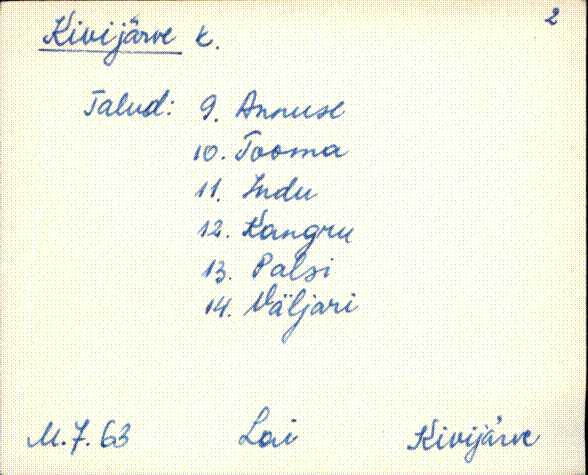 2
Kivijärve k.
Talud: 9. Annuse
10. Tooma
11. Indu
12. Kangru
13. Palsi
14. Väljari
M.7.63 Lai Kivijärve